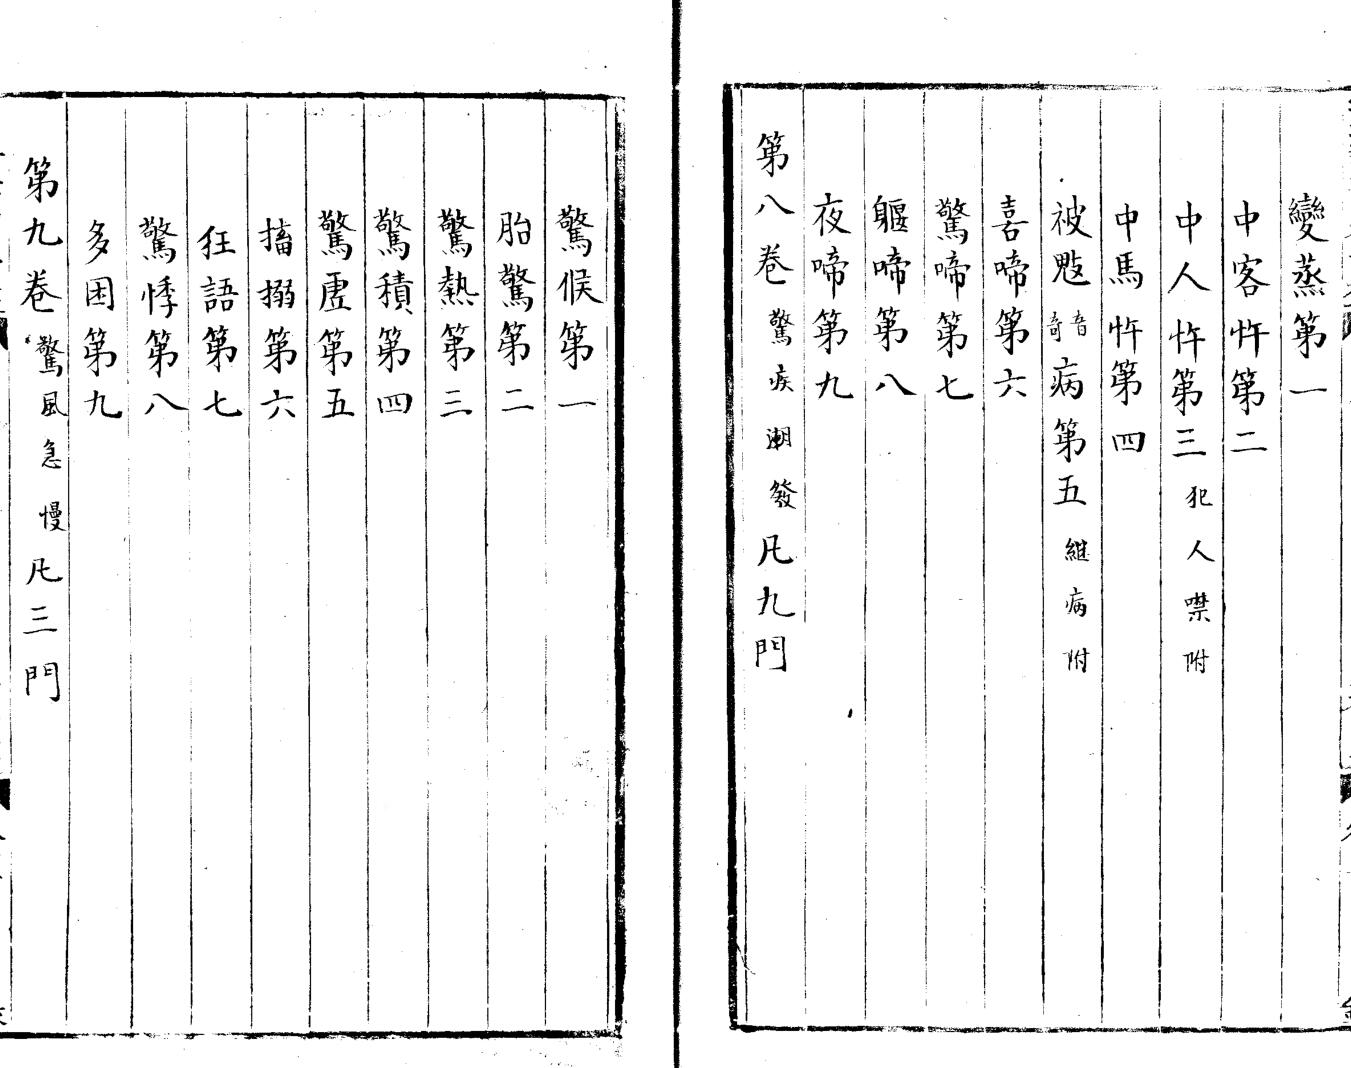 變蒸第一
中客忤第二
中人忤第三犯人噤附
中馬忤第四
被鬾音奇病第五繼病附
喜啼第六
驚啼第七
軀啼第八
夜啼第九
第八卷驚疾潮發凡九門
驚候第一
胎驚第二
驚熱第三
驚積第四
驚虛第五
搐搦第六
狂語第七
驚悸第八
多困第九
第九卷驚風急慢凡三門